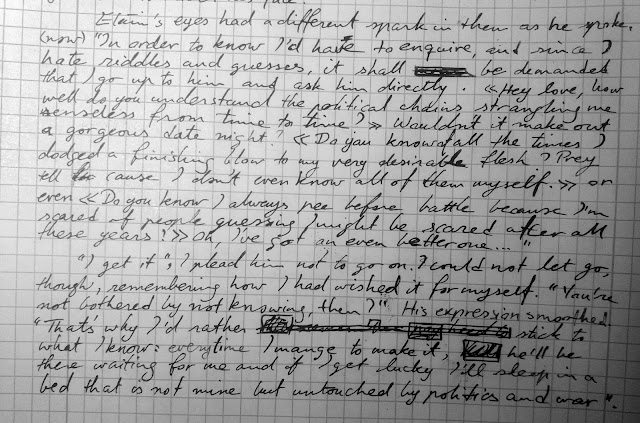 Elain's eyes had a different spark in them as he spoke.
(now) "In order to know I'd have to enquire, and since I
hate riddles and guesses, it shall be demanded
that I go up to him and ask him directly. «Hey love, how
well do you understand the political chains strangling me
senseless from time to time?» Wouldn't it make out
a gorgeous date night? «Do you know of all the times I
dodged a finishing blow to my very desirable flesh? Prey
tell 'cause I don't even know all of them myself.» or
even «Do you know I always pee before battle because I'm
scared of people guessing I might be scared after all
these years?» Oh, I've got an even better one..."
"I get it", I plead him not to go on. I could not let go,
though, remembering how I had wished it for myself. "You're
not bothered by not knowing, then?" His expression smoothed.
"That's why I'd rather stick to
what I know: everytime I mange to make it, he'll be
there waiting for me and if I get lucky I'll sleep in a
bed that is not mine but untouched by politics and war".